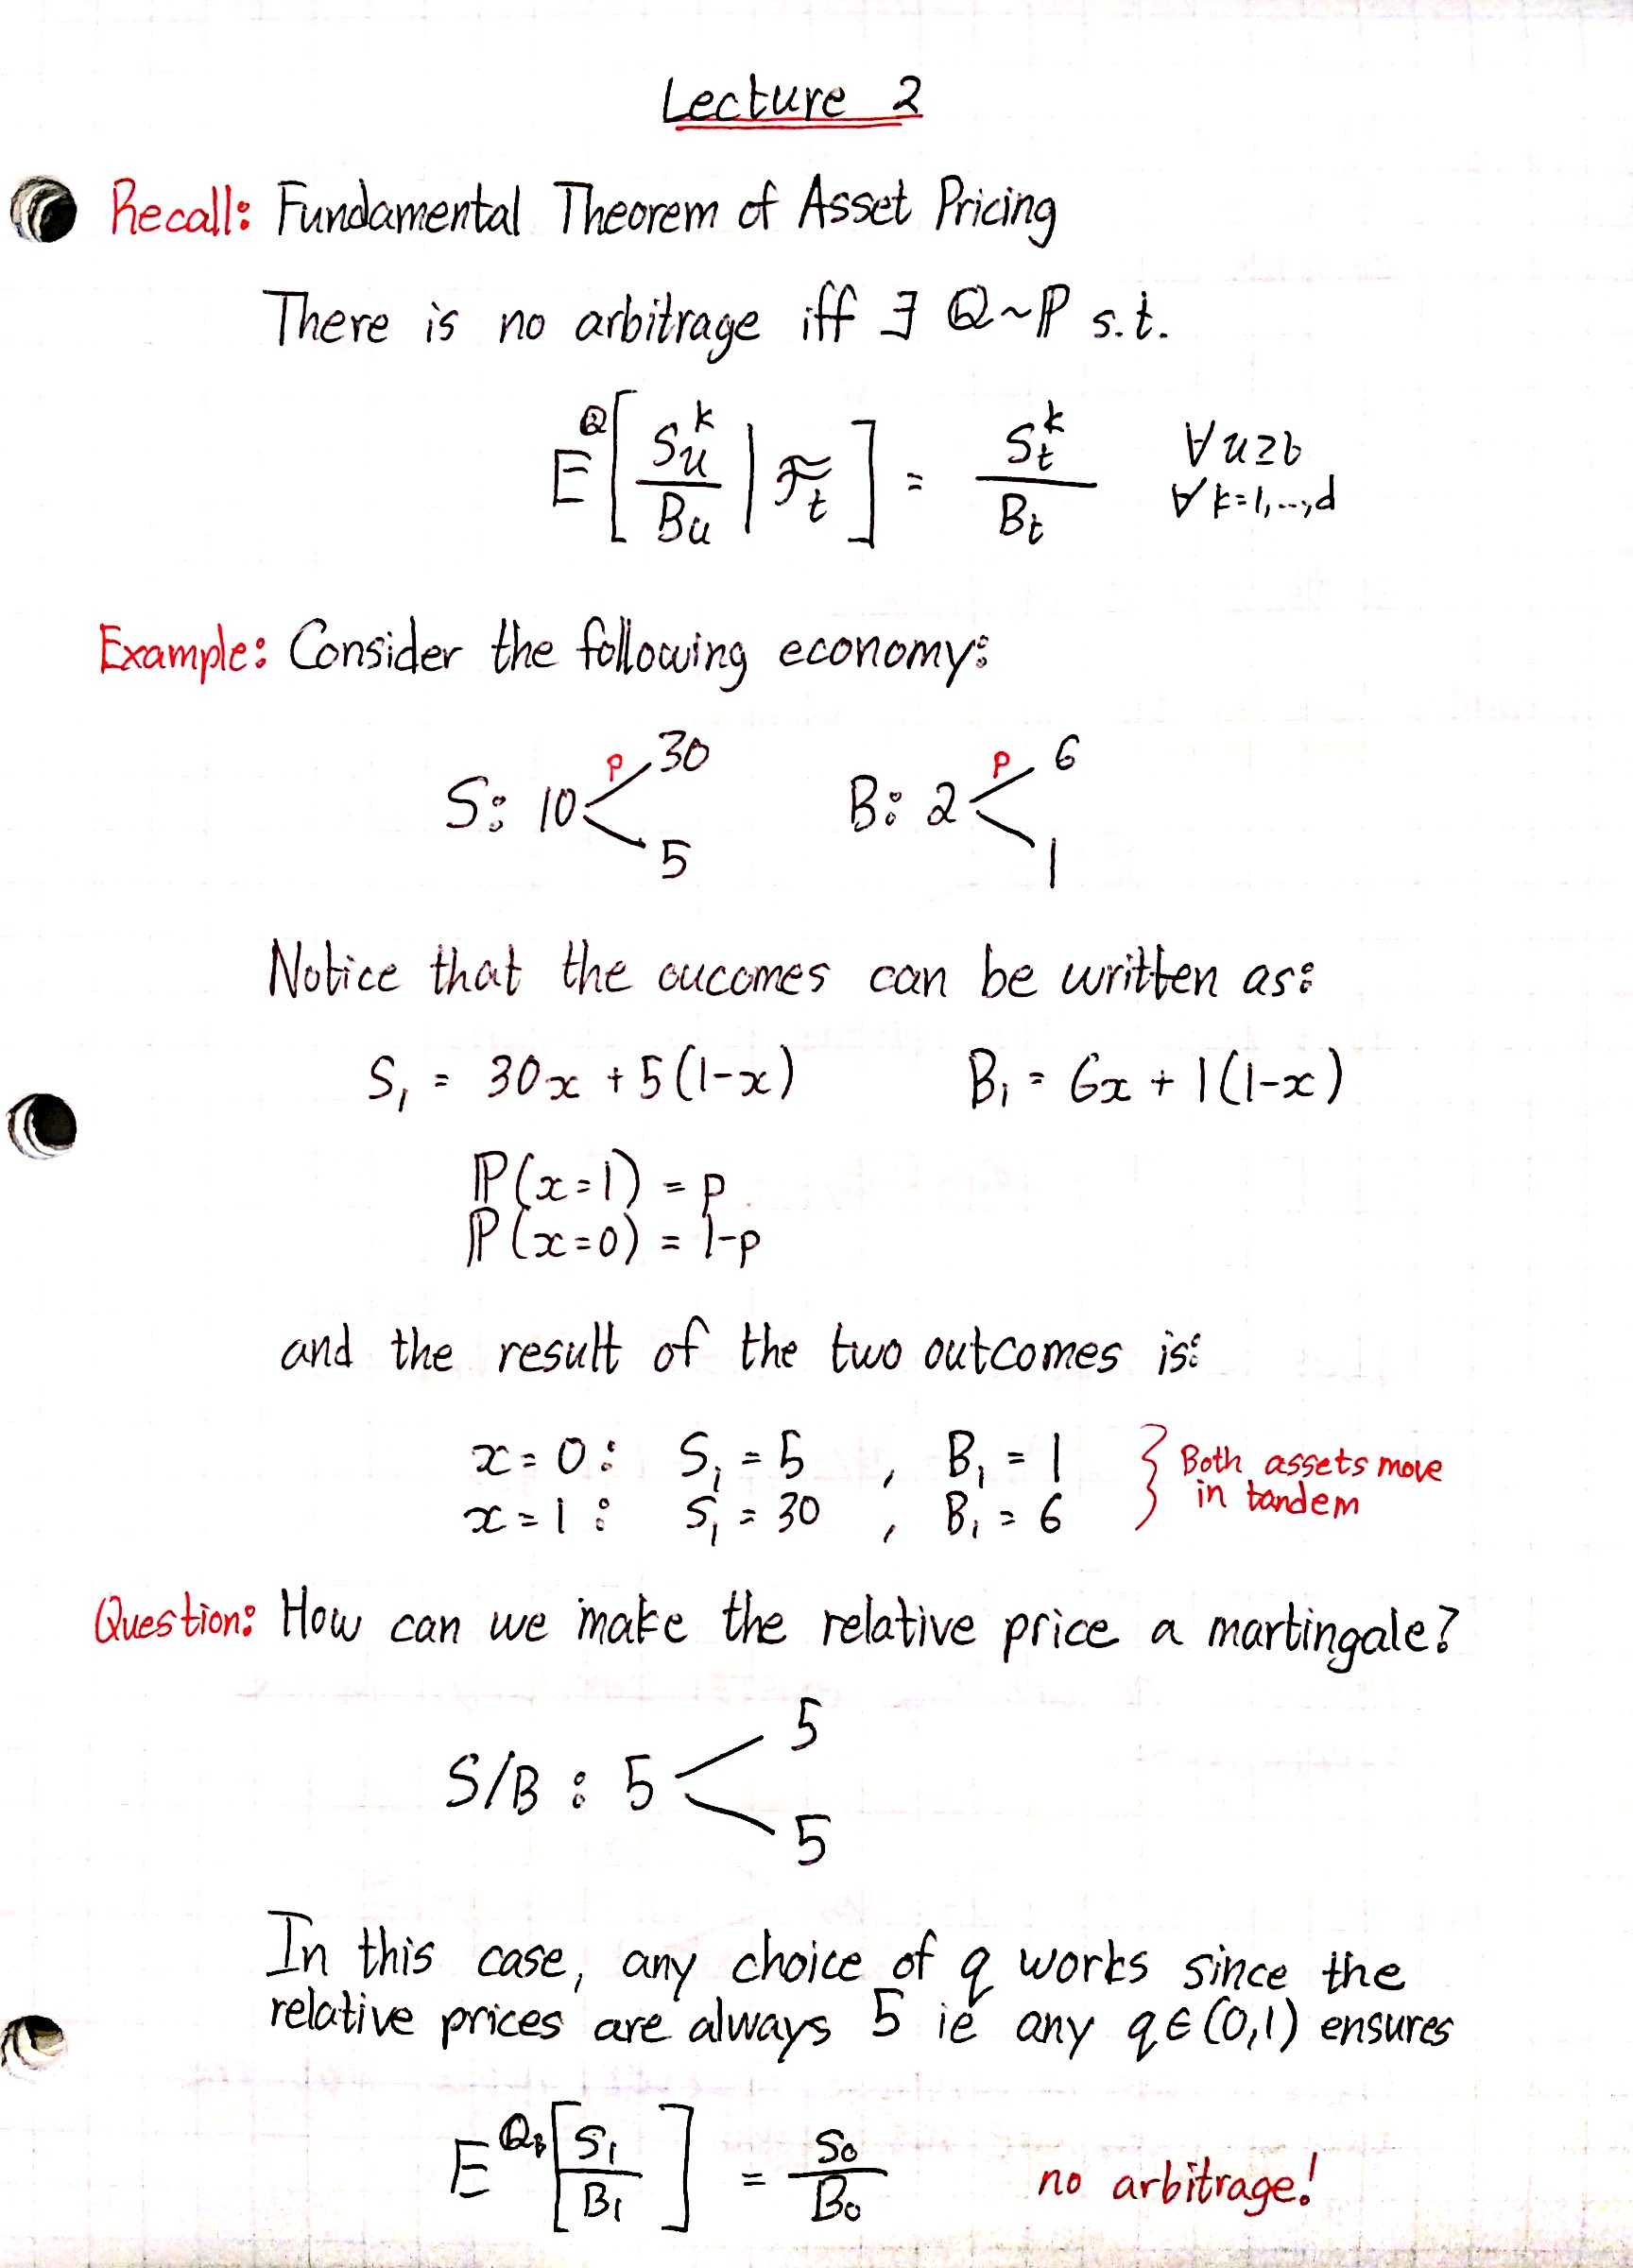 Lecture 2
Recall: Fundamental Theorem of Asset Pricing
There is no arbitrage iff ∃ ℚ~ℙ s.t.
E^ℚ[ S_u^k / B_u | ℱ_t ] = S_t^k / B_t ∀ u≥t
∀ k=1,...,d
Example: Consider the following economy:
S: 10 < p 30 B: 2 < p 6
5 1
Notice that the oucomes can be written as:
S_1 = 30x + 5(1-x) B_1 = 6x + 1(1-x)
ℙ(x=1) = p
ℙ(x=0) = 1-p
and the result of the two outcomes is:
x=0: S_1 = 5 , B_1 = 1 } Both assets move
x=1: S_1 = 30 , B_1 = 6 in tandem
Question: How can we make the relative price a martingale?
S/B : 5 < 5
5
In this case, any choice of q works since the
relative prices are always 5 ie any q∈(0,1) ensures
E^{ℚ_B}[ S_1 / B_1 ] = S_0 / B_0 no arbitrage!